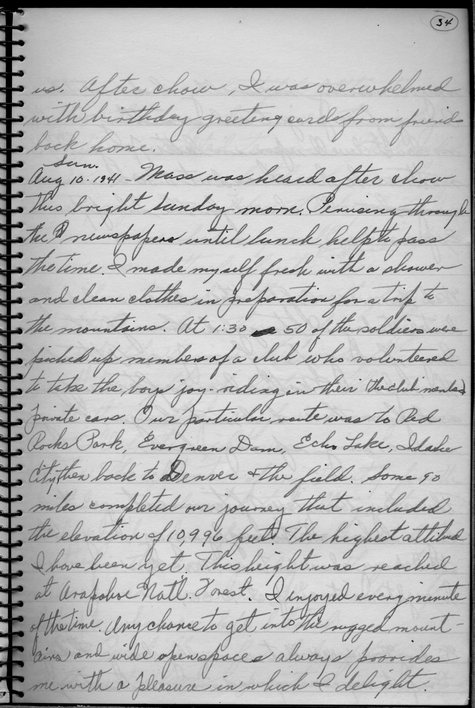 34
us. After chow, I was overwhelmed
with birthday greeting cards from friends
back home.
Sun.
Aug 10 - 1941 - Mass was heard after chow
this bright Sunday morn. Perusing through
the newspapers until lunch helpt pass
the time. I made myself fresh with a shower
and clean clothes in preparation for a trip to
the mountains. At 1:30 50 of the soldiers were
picked up members of a club who volunteered
to take the boys joy-riding in their the club members
private cars. Our particular route was to Red
Rocks Park, Evergreen Dam, Echo Lake, Idaho
City, then back to Denver & the field. Some 90
miles completed our journey that included
the elevation of 10,996 feet. The highest attitud
I have been yet. This height was reached
at Arapahoe Nat'l. Forest. I injoyed every minute
of the time. Any chance to get into the rugged mount-
ains and wide open spaces always provides
me with a pleasure in which I delight.